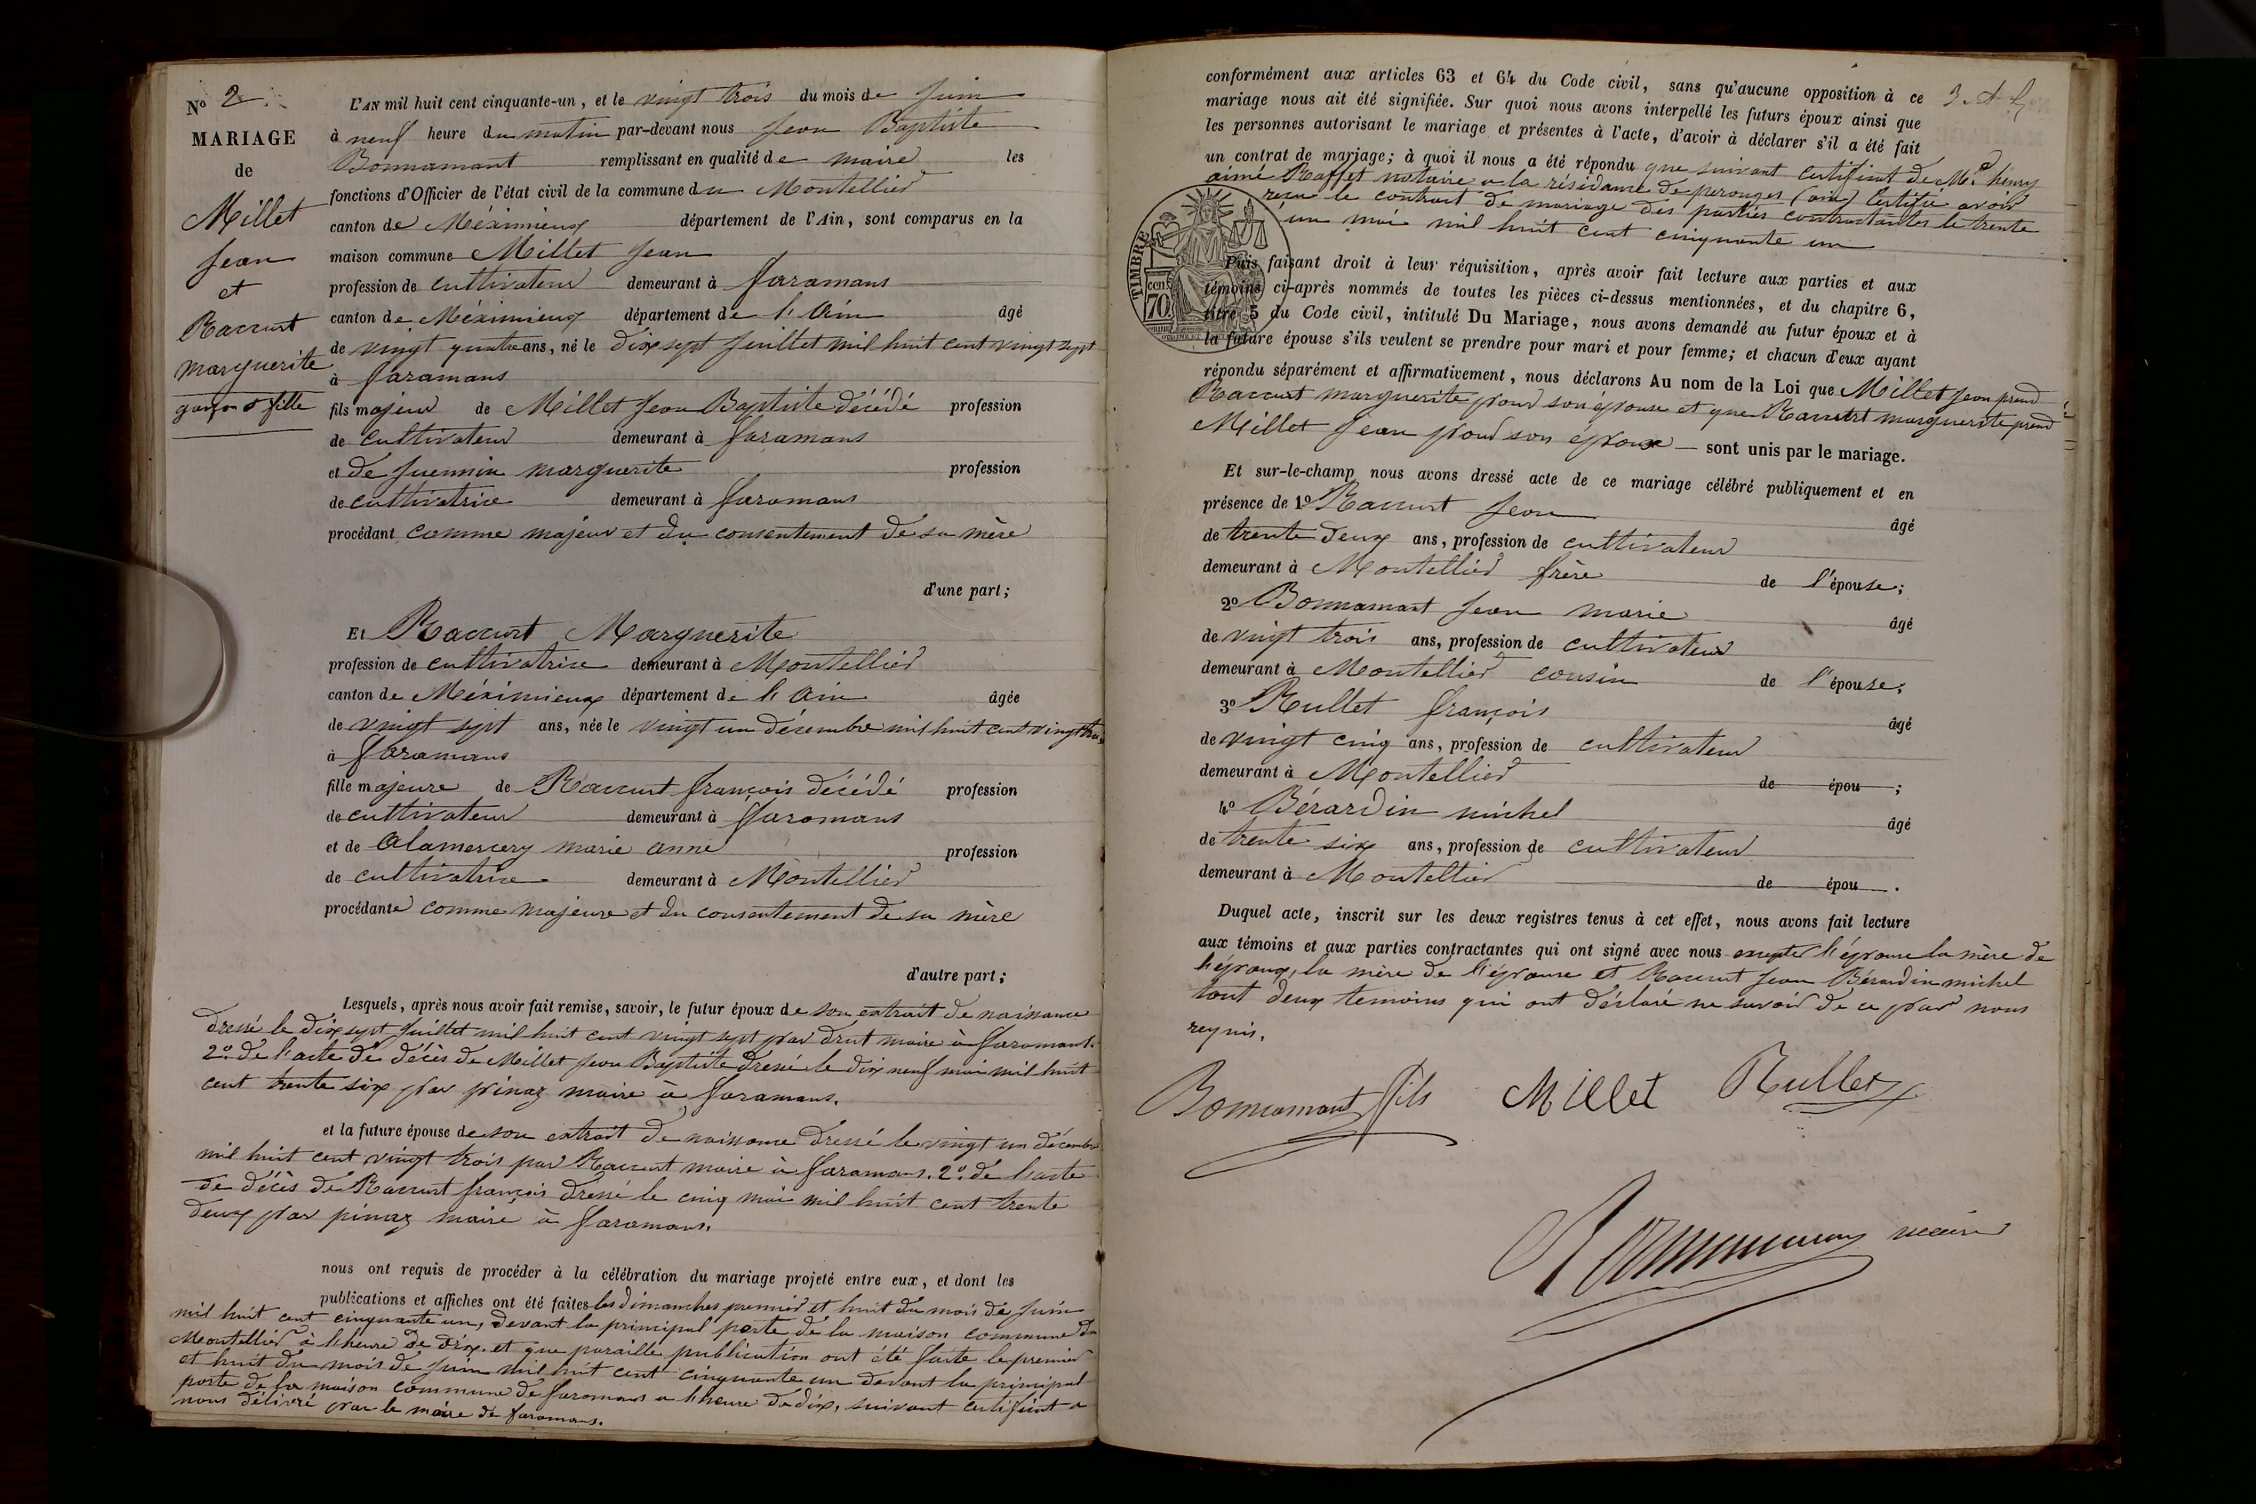 N° 2.
MARIAGE
de
Millet
Jean
et
Raccurt
Marguerite
garçon & fille
L'AN mil huit cent cinquante-un, et le vingt trois du mois de Juin
à neuf heure du matin par-devant nous Jean Baptiste
Bonnamant remplissant en qualité de maire les
fonctions d'Officier de l'état civil de la commune du Montellier
canton de Méximieux département de l'Ain, sont comparus en la
maison commune Millet Jean
profession de cultivateur demeurant à faramans
canton de Méximieux département de l'Ain âgé
de vingt quatre ans, né le dix sept Juillet mil huit cent vingt sept
à faramans
fils majeur de Millet Jean Baptiste décédé profession
de cultivateur demeurant à faramans
et de Juennin marguerite profession
de cultivatrice demeurant à faramans
procédant comme majeur et du consentement de sa mère
d'une part;
Et Raccurt Marguerite
profession de cultivatrice demeurant à Montellier
canton de Méximieux département de l'ain âgée
de vingt sept ans, née le vingt un décembre mil huit cent vingt trois
à faramans
fille majeure de Raccurt françois décédé profession
de cultivateur demeurant à faramans
et de Alamercery marie anne profession
de cultivatrice demeurant à Montellier
procédante comme majeure et du consentement de sa mère
d'autre part;
Lesquels, après nous avoir fait remise, savoir, le futur époux de son extrait de naissance
dressé le dix sept Juillet mil huit cent vingt sept par Drut maire à faramans.
2° de l'acte de décès de Millet Jean Baptiste dressé le dix neuf mai mil huit
cent trente six par pinaz maire à faramans.
et la future épouse de son extrait de naissance dressé le vingt un décembre
mil huit cent vingt trois par Raccurt maire à faramans. 2° de l'acte
de décès de Raccurt françois dressé le cinq mai mil huit cent trente
deux par pinaz maire à faramans.
nous ont requis de procéder à la célébration du mariage projeté entre eux, et dont les
publications et affiches ont été faites les dimanches premier et huit du mois de Juin
mil huit cent cinquante un, devant la principal porte de la maison commune du
Montellier à l'heure de dix. et que paraille publication ont été faite le premier
et huit du mois de Juin mil huit cent cinquante un devant la principal
porte de la maison commune de faramans a l'heure de dix, suivant certificat a
nous délivré par le maire de faramans.
conformément aux articles 63 et 64 du Code civil, sans qu'aucune opposition à ce
mariage nous ait été signifiée. Sur quoi nous avons interpellé les futurs époux ainsi que
les personnes autorisant le mariage et présentes à l'acte, d'avoir à déclarer s'il a été fait
un contrat de mariage; à quoi il nous a été répondu que suivant certificat de Me henry
aimé Raffet notaire a la résidance de perouges (ain) Certifié avoir
reçu le contrat de mariage des parties contractantes le trente
un mai mil huit cent cinquante un
TIMBRE
70 cen
Puis faisant droit à leur réquisition, après avoir fait lecture aux parties et aux
témoins ci-après nommés de toutes les pièces ci-dessus mentionnées, et du chapitre 6,
titre 5 du Code civil, intitulé Du Mariage, nous avons demandé au futur époux et à
la future épouse s'ils veulent se prendre pour mari et pour femme; et chacun d'eux ayant
répondu séparément et affirmativement, nous déclarons Au nom de la Loi que Millet Jean prend
Raccurt marguerite pour son épouse et que Raccurt marguerite prend
Millet Jean pour son epoux — sont unis par le mariage.
Et sur-le-champ nous avons dressé acte de ce mariage célébré publiquement et en
présence de 1° Raccurt Jean âgé
de trente deux ans, profession de cultivateur
demeurant à Montellier frère de l'épouse;
2° Bonnamant Jean marie âgé
de vingt trois ans, profession de cultivateur
demeurant à Montellier cousin de l'épouse;
3° Rullet françois âgé
de vingt cinq ans, profession de cultivateur
demeurant à Montellier de épou ;
4° Bérardin michel âgé
de trente six ans, profession de cultivateur
demeurant à Montellier de épou .
Duquel acte, inscrit sur les deux registres tenus à cet effet, nous avons fait lecture
aux témoins et aux parties contractantes qui ont signé avec nous excepter l'épouse la mère de
l'époux, la mère de l'épouse et Raccurt Jean Bérardin michel
tout deux temoins qui ont déclaré ne savoir de ce par nous
requis.
Bonnamant fils Millet Rullet
Bonnamant maire